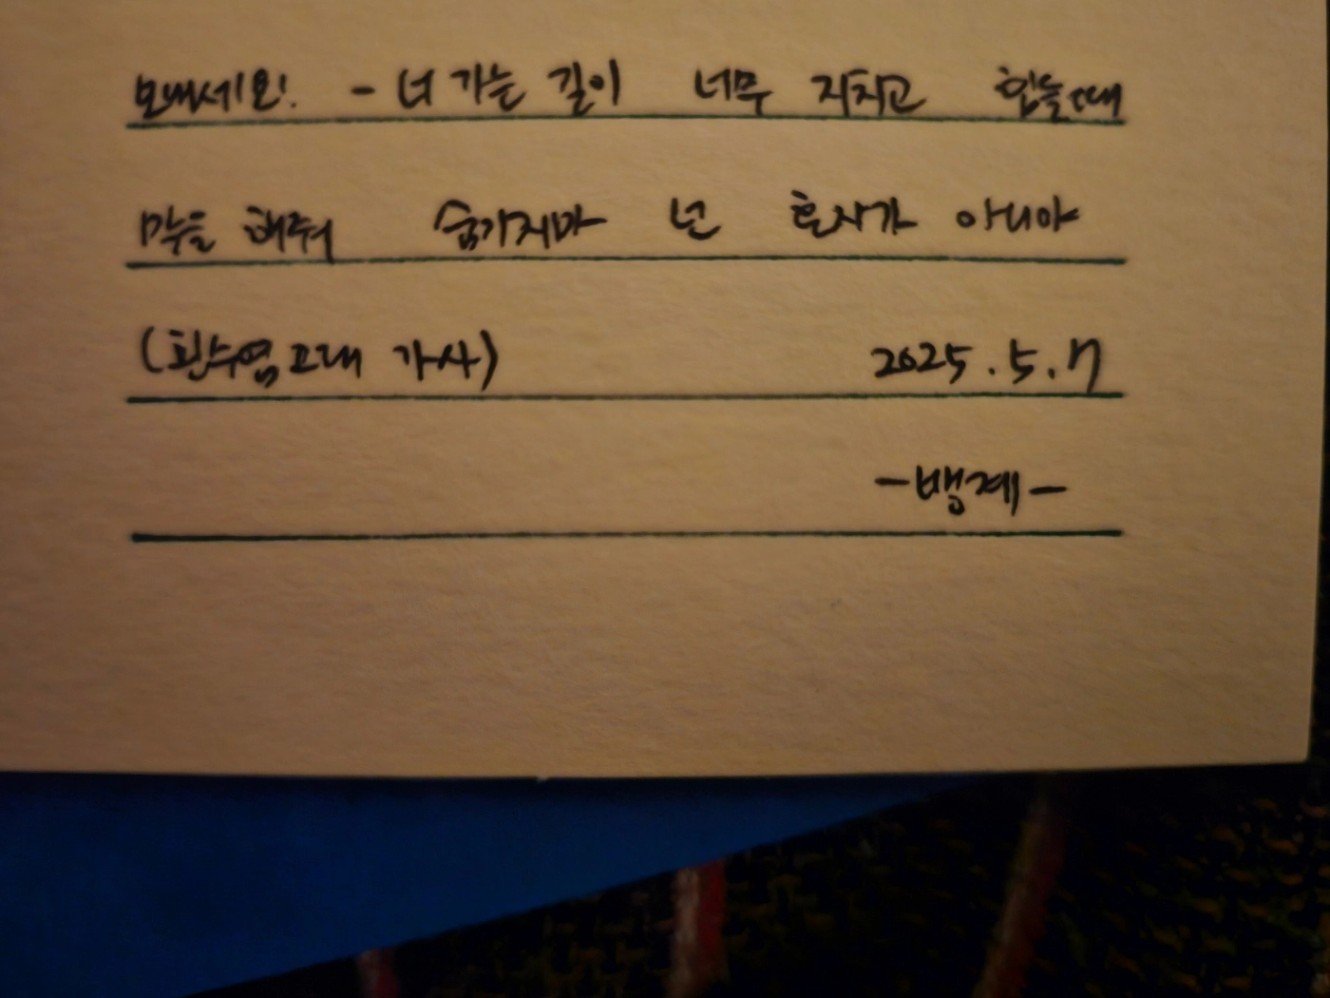 보내세요! - 너 가는 길이 너무 지치고 힘들때
말을 해줘 숨기지마 넌 혼자가 아니야
( 고래 가사) 2025.5.7
-뱅계-